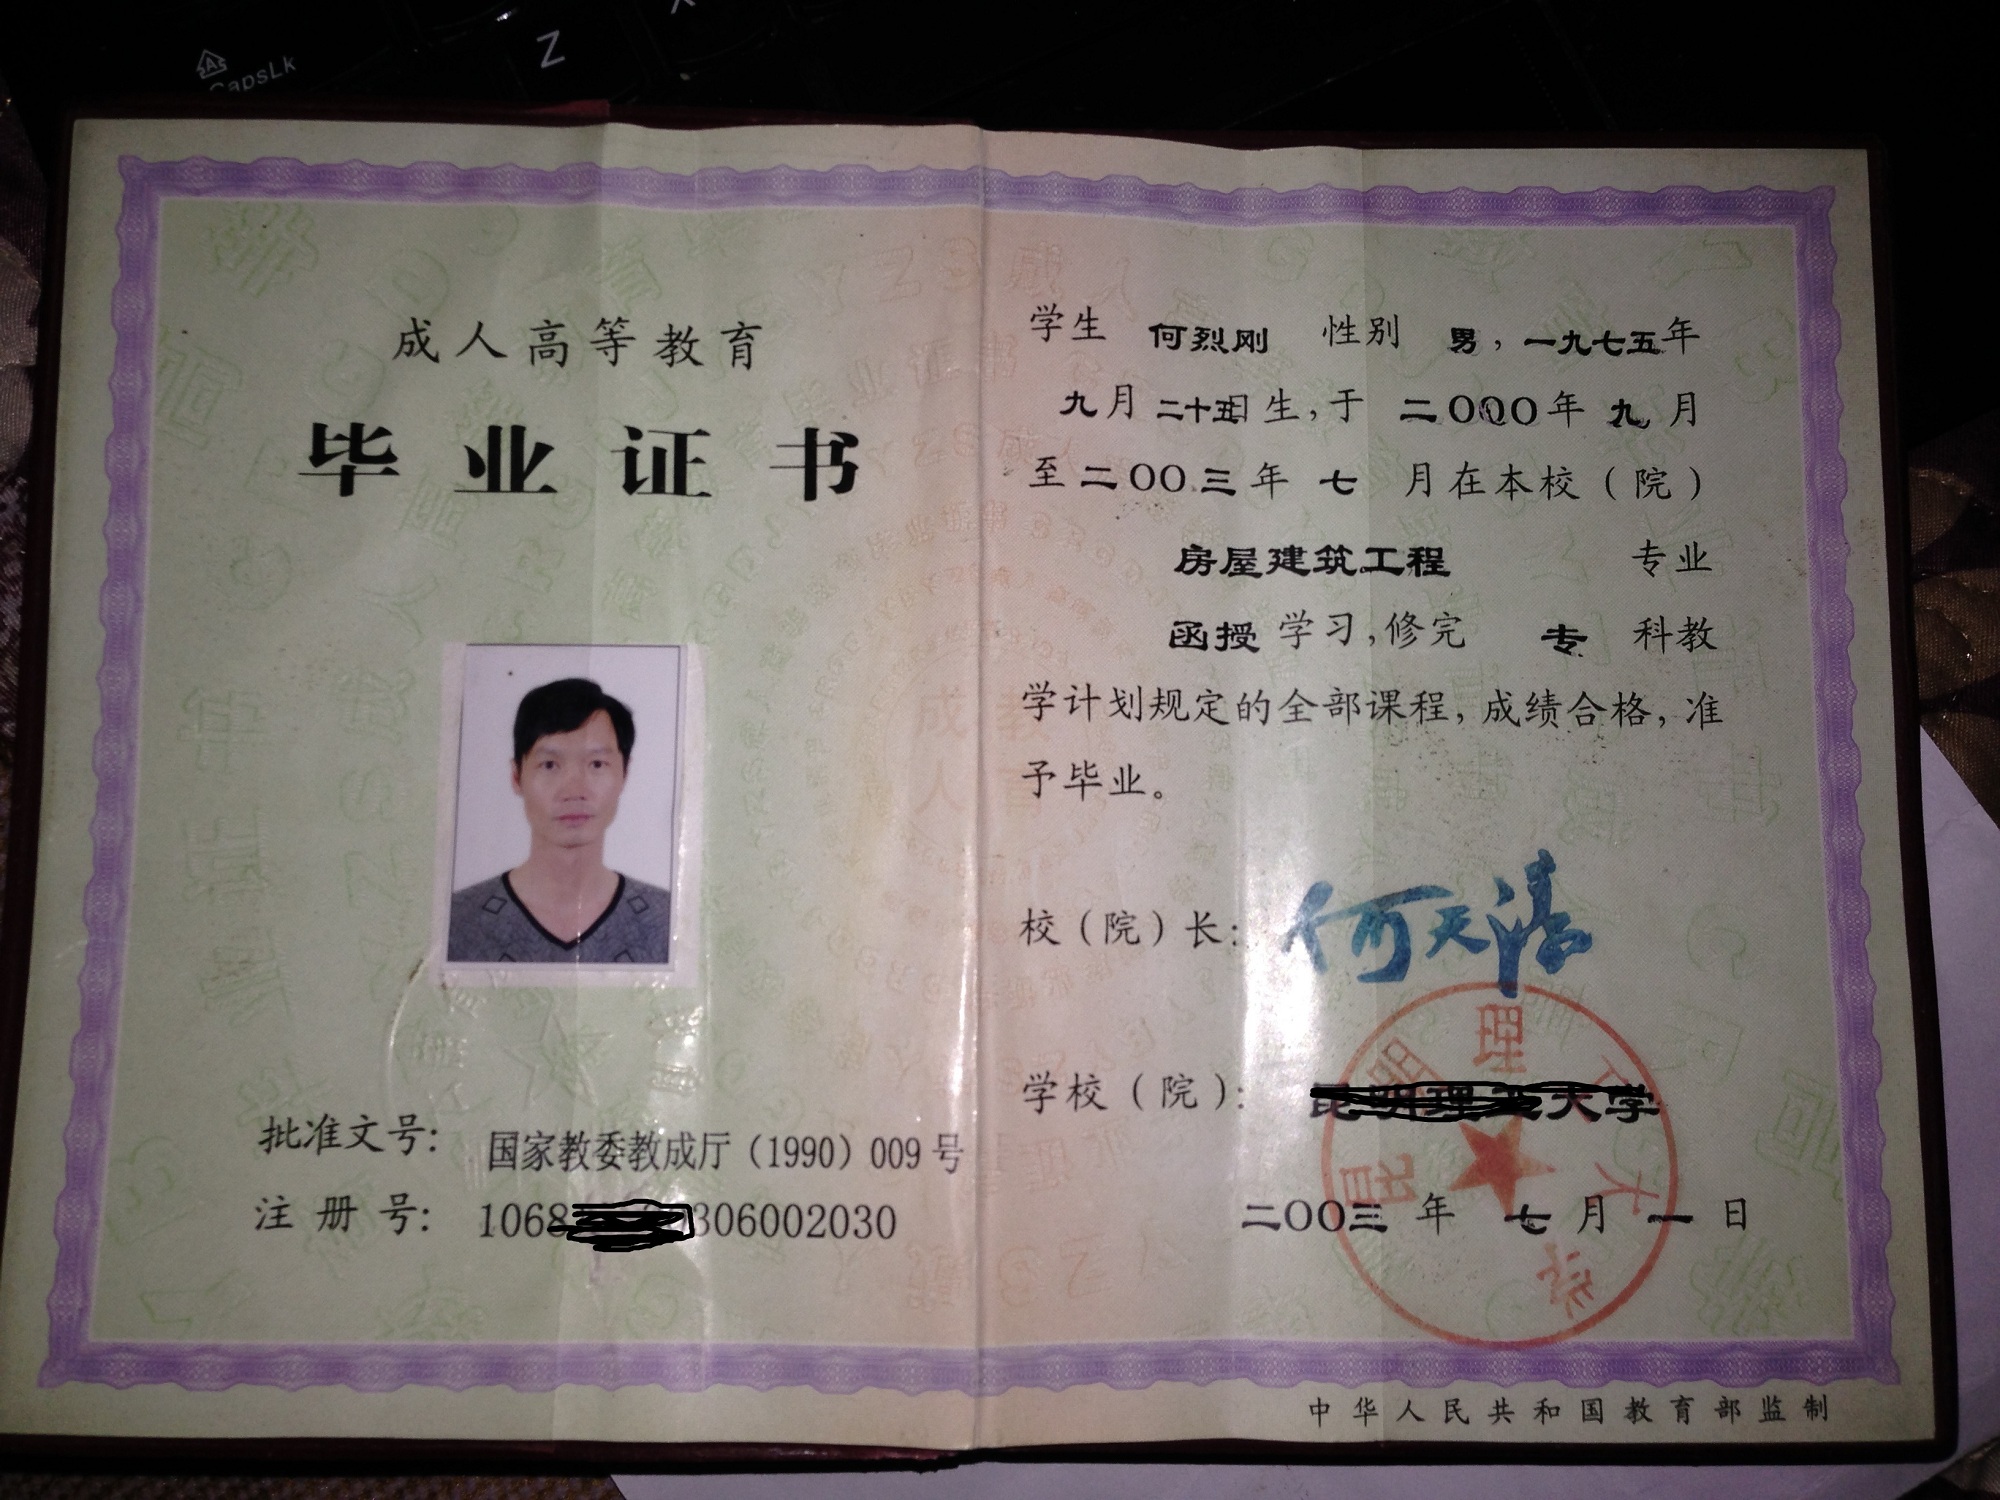 CapsLk
Z
成人高等教育
毕业证书
批准文号: 国家教委教成厅（1990）009号
注册号: 1068 306002030
学生 何烈刚 性别 男，一九七五年
九月二十五日生，于 二〇〇〇年 九月
至二〇〇三年 七 月在本校（院）
房屋建筑工程 专业
函授学习，修完 专 科教
学计划规定的全部课程，成绩合格，准
予毕业。
校（院）长: 何天淳
学校（院）: 大学
昆明理工大学
二〇〇三年 七月一日
中华人民共和国教育部监制